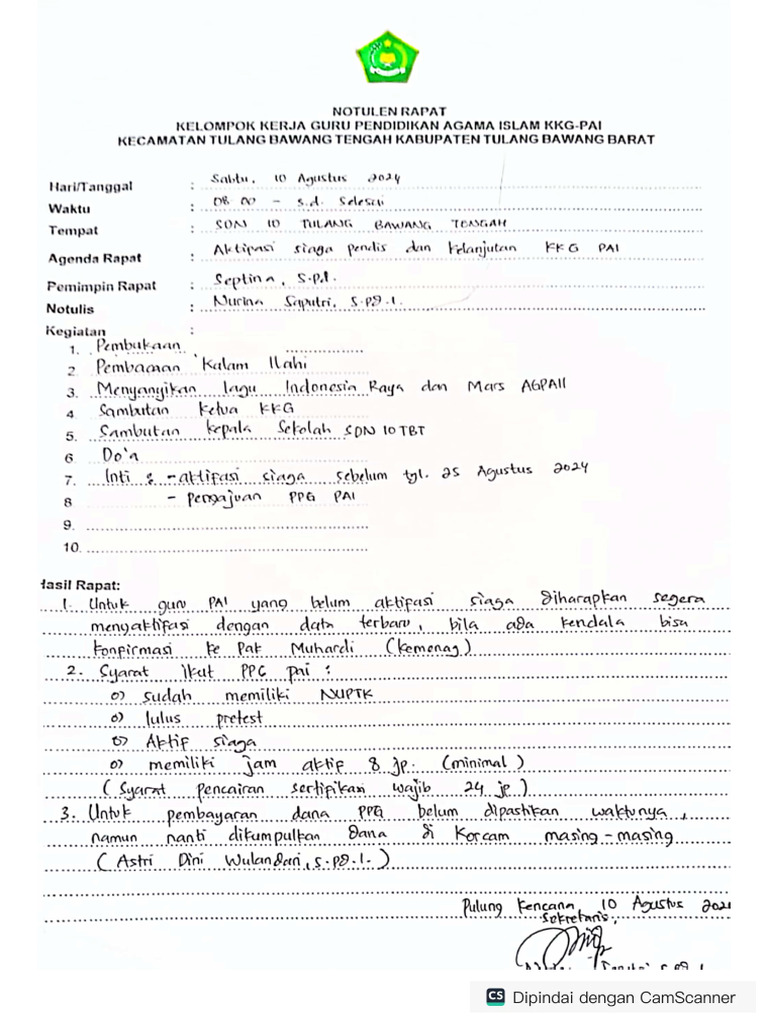 NOTULEN RAPAT
KELOMPOK KERJA GURU PENDIDIKAN AGAMA ISLAM KKG-PAI
KECAMATAN TULANG BAWANG TENGAH KABUPATEN TULANG BAWANG BARAT
Hari/Tanggal : Sabtu, 10 Agustus 2024
Waktu : 08.00 - s.d. Selesai
Tempat : SDN 10 TULANG BAWANG TENGAH
Agenda Rapat : Aktipasi siaga pendis dan kelanjutan KKG PAI
Pemimpin Rapat : Septina, S.p.I.
Notulis : Nurina Saputri, S.Pd.I.
Kegiatan :
1. Pembukaan
2 Pembacaan Kalam Ilahi
3. Menyanyikan lagu Indonesia Raya dan Mars AGPAII
4 Sambutan ketua KKG
5. Sambutan kepala Sekolah SDN 10 TBT
6 Do'a
7. Inti : - aktifasi siaga sebelum tgl. 25 Agustus 2024
8 - pengajuan PPG PAI
9.
10.
Hasil Rapat:
1. Untuk guru PAI yang belum aktifasi siaga diharapkan segera
mengaktifasi dengan data terbaru, bila ada kendala bisa
konpirmasi ke Pak Muhardi (kemenag)
2. Syarat ikut PPG pai :
o) sudah memiliki NUPTK
o) lulus pretest
o) Aktif siaga
o) memiliki jam aktif 8 jp. (minimal)
(Syarat pencairan sertifikasi wajib 24 jp)
3. Untuk pembayaran dana PPG belum dipastikan waktunya,
namun nanti dikumpulkan dana di Korcam masing-masing
(Astri Dini Wulandari, S.Pd.I.)
Pulung Kencana, 10 Agustus 202
Sekretaris,
CS Dipindai dengan CamScanner